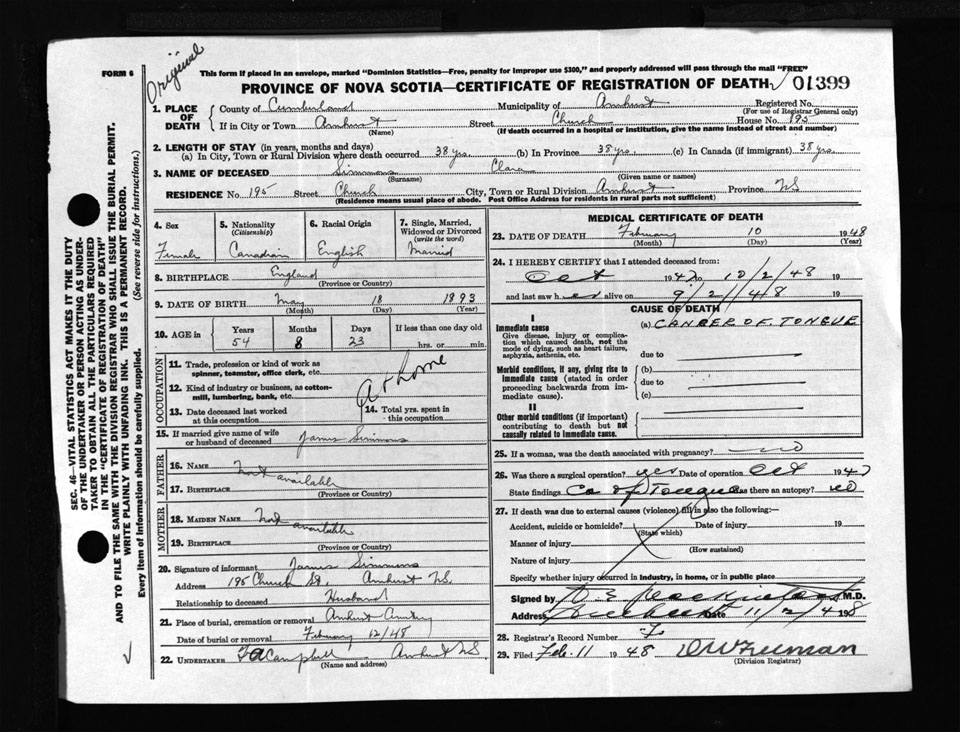 Original
FORM 6
This form if placed in an envelope, marked "Dominion Statistics—Free, penalty for improper use $300," and properly addressed will pass through the mail "FREE"
PROVINCE OF NOVA SCOTIA—CERTIFICATE OF REGISTRATION OF DEATH. 01399
SEC. 46—VITAL STATISTICS ACT MAKES IT THE DUTY
OF THE UNDERTAKER OR PERSON ACTING AS UNDER-
TAKER TO OBTAIN ALL THE PARTICULARS REQUIRED
IN THE "CERTIFICATE OF REGISTRATION OF DEATH"
AND TO FILE THE SAME WITH THE DIVISION REGISTRAR WHO SHALL ISSUE THE BURIAL PERMIT.
WRITE PLAINLY WITH UNFADING INK. THIS IS A PERMANENT RECORD.
Every item of information should be carefully supplied. (See reverse side for instructions.)
1. PLACE OF DEATH { County of Cumberland Municipality of Amherst Registered No.
(For use of Registrar General only)
If in City or Town Amherst Street Church House No. 195
(Name) (If death occurred in a hospital or institution, give the name instead of street and number)
2. LENGTH OF STAY (in years, months and days)
(a) In City, Town or Rural Division where death occurred 38 yrs. (b) In Province 38 yrs. (c) In Canada (if immigrant) 38 yrs.
3. NAME OF DECEASED Simmons Clara
(Surname) (Given name or names)
RESIDENCE No. 195 Street Church City, Town or Rural Division Amherst Province NS
(Residence means usual place of abode. Post Office Address for residents in rural parts not sufficient)
4. Sex 5. Nationality (Citizenship) 6. Racial Origin 7. Single, Married, Widowed or Divorced (write the word)
Female Canadian English Married
8. BIRTHPLACE England
(Province or Country)
9. DATE OF BIRTH May 18 1893
(Month) (Day) (Year)
10. AGE in { Years Months Days If less than one day old
54 8 23 hrs. or min.
OCCUPATION
11. Trade, profession or kind of work as spinner, teamster, office clerk, etc.
At home
12. Kind of industry or business, as cotton-mill, lumbering, bank, etc.
13. Date deceased last worked at this occupation 14. Total yrs. spent in this occupation
15. If married give name of wife or husband of deceased James Simmons
FATHER
16. NAME Not available
17. BIRTHPLACE
(Province or Country)
MOTHER
18. MAIDEN NAME Not available
19. BIRTHPLACE
(Province or Country)
20. Signature of informant James Simmons
Address 195 Church St. Amherst NS.
Relationship to deceased Husband
21. Place of burial, cremation or removal Amherst
Date of burial or removal February 12/48
22. UNDERTAKER Campbell Amherst NS.
(Name and address)
MEDICAL CERTIFICATE OF DEATH
23. DATE OF DEATH February 10 1948
(Month) (Day) (Year)
24. I HEREBY CERTIFY that I attended deceased from:
Oct 1947 to 10/2/48 19
and last saw her alive on 9/2/48 19
CAUSE OF DEATH
I
Immediate cause (a) CANCER OF TONGUE
Give disease, injury or complica-
tion which caused death, not the
mode of dying, such as heart failure,
asphyxia, asthenia, etc. due to
Morbid conditions, if any, giving rise to
immediate cause (stated in order
proceeding backwards from im-
mediate cause).
(b)
due to
(c)
II
Other morbid conditions (if important)
contributing to death but not
causally related to immediate cause.
25. If a woman, was the death associated with pregnancy? no
26. Was there a surgical operation? yes Date of operation Oct 1947
State findings Ca of Tongue Was there an autopsy? no
27. If death was due to external causes (violence) fill in also the following:—
Accident, suicide or homicide? Date of injury 19
(State which)
Manner of injury
(How sustained)
Nature of injury
Specify whether injury occurred in industry, in home, or in public place
Signed by M.D.
Address Date 11/2/48 19
28. Registrar's Record Number 7
29. Filed Feb. 11 1948 Freeman
(Division Registrar)